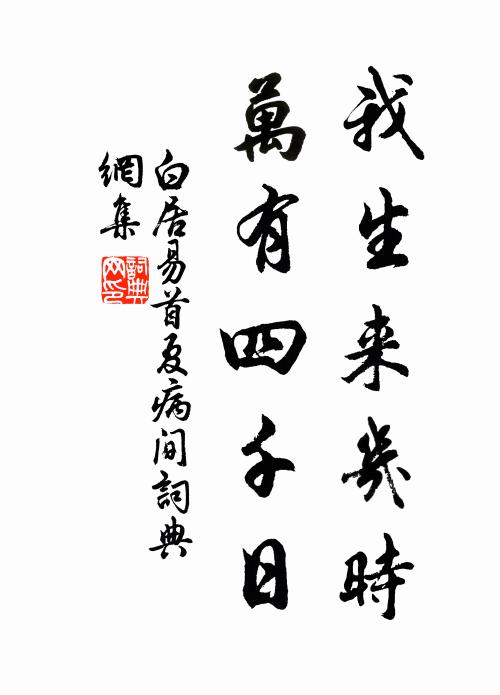 我生来幾時
萬有四千日
白居易首夏病间詞典
網集
詞典
网印